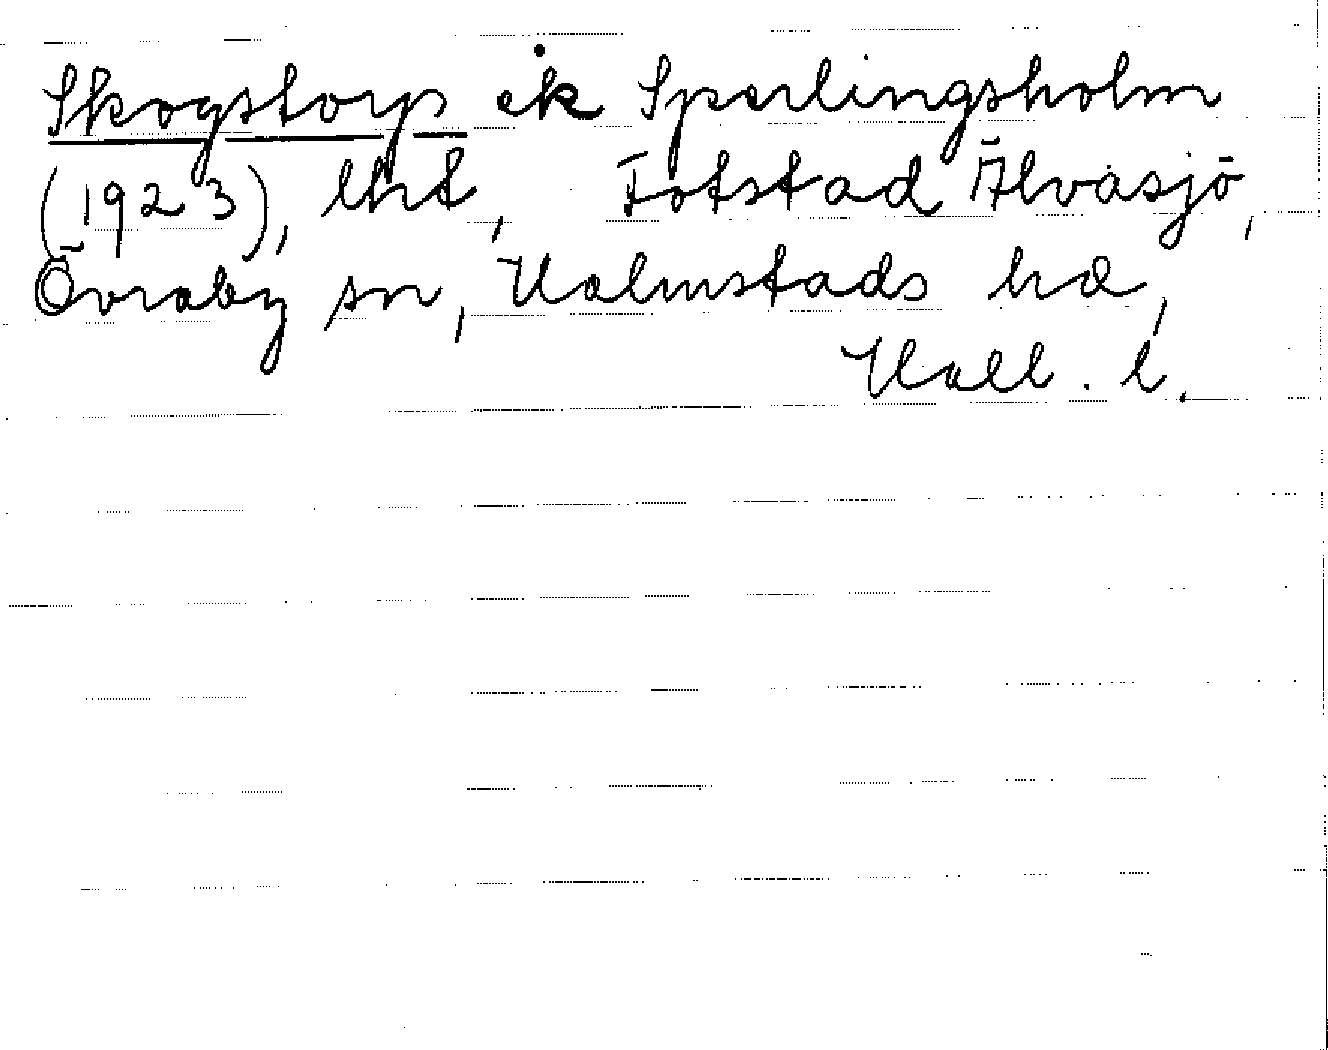 Skogstorp ek Sperlingsholm
(1923), lht, Fotstad Älvasjö,
Övraby sn, Halmstads hd,
Hall. l.